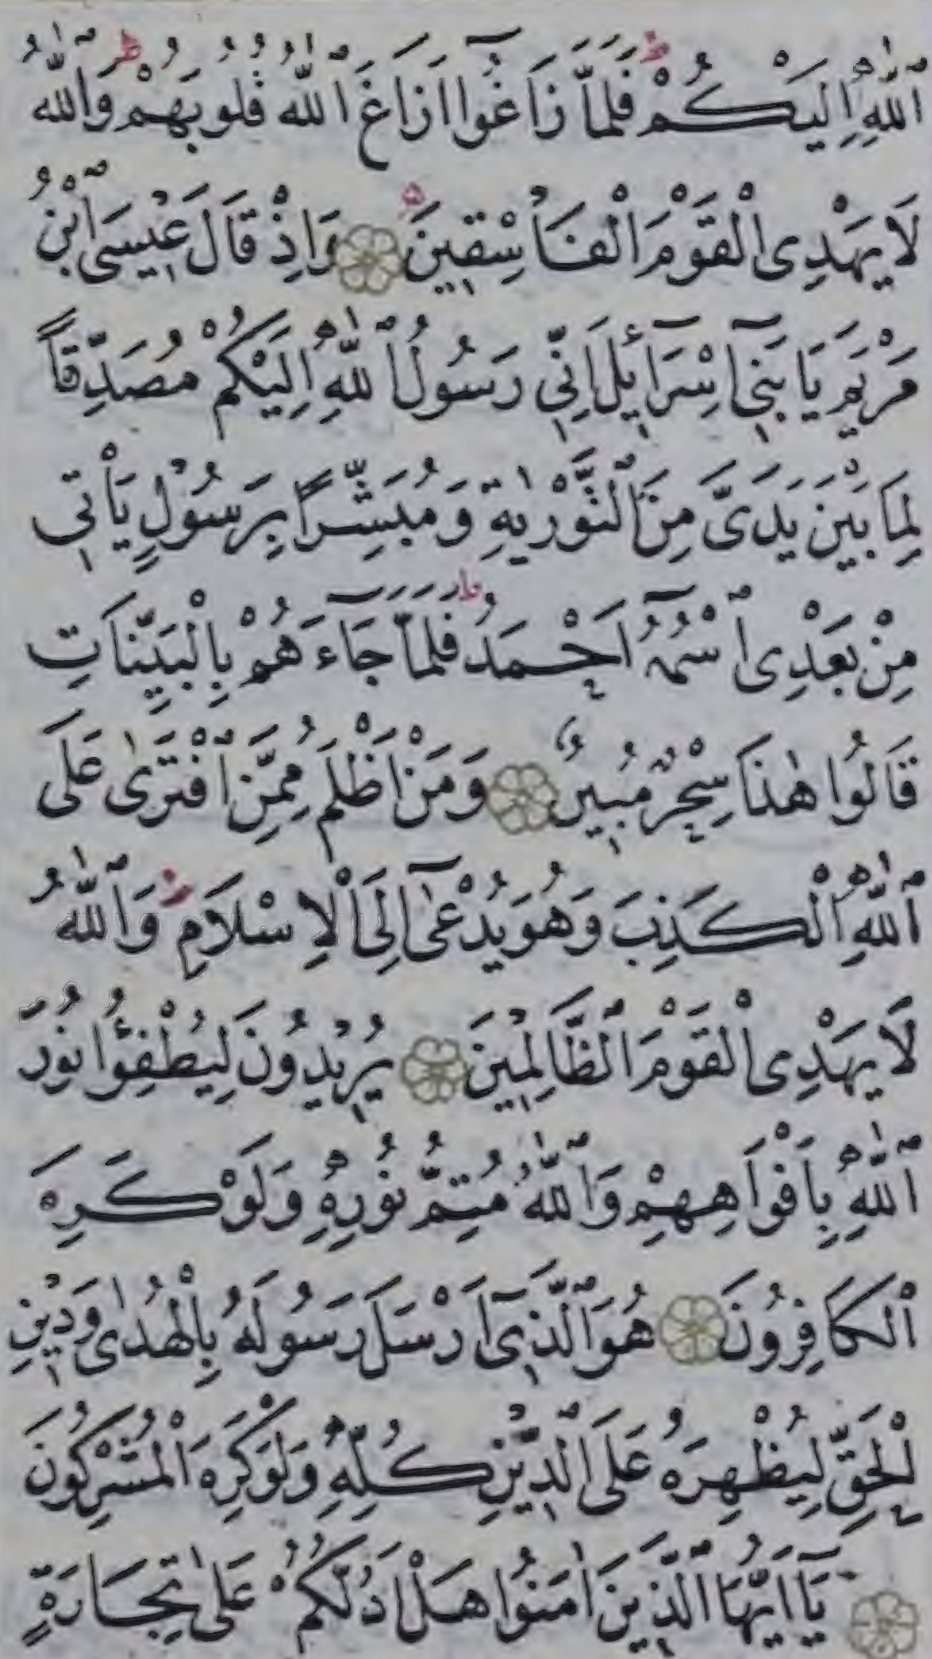 اَللّٰهِ اِلَيْكُمْ ط فَلَمَّا زَاغُوا اَزَاغَ اللّٰهُ قُلُوبَهُمْ ط وَاللّٰهُ
لَا يَهْدِى الْقَوْمَ الْفَاسِقِينَ ۝ وَاِذْ قَالَ عِيسَى ابْنُ
مَرْيَمَ يَا بَنِى اِسْرَائِلَ اِنِّى رَسُولُ اللّٰهِ اِلَيْكُمْ مُصَدِّقًا
لِمَا بَيْنَ يَدَىَّ مِنَ التَّوْرٰيةِ وَمُبَشِّرًا بِرَسُولٍ يَأْتِى
مِنْ بَعْدِى اسْمُهُ اَحْمَدُ ط فَلَمَّا جَاءَهُمْ بِالْبَيِّنَاتِ
قَالُوا هٰذَا سِحْرٌ مُبِينٌ ۝ وَمَنْ اَظْلَمُ مِمَّنِ افْتَرٰى عَلَى
اللّٰهِ الْكَذِبَ وَهُوَ يُدْعٰى اِلَى الْاِسْلَامِ ط وَاللّٰهُ
لَا يَهْدِى الْقَوْمَ الظَّالِمِينَ ۝ يُرِيدُونَ لِيُطْفِؤُا نُورَ
اللّٰهِ بِاَفْوَاهِهِمْ وَاللّٰهُ مُتِمُّ نُورِهِ وَلَوْ كَرِهَ
الْكَافِرُونَ ۝ هُوَ الَّذِى اَرْسَلَ رَسُولَهُ بِالْهُدٰى وَدِينِ
الْحَقِّ لِيُظْهِرَهُ عَلَى الدِّينِ كُلِّهِ وَلَوْ كَرِهَ الْمُشْرِكُونَ
۝ يَا اَيُّهَا الَّذِينَ اٰمَنُوا هَلْ اَدُلُّكُمْ عَلٰى تِجَارَةٍ